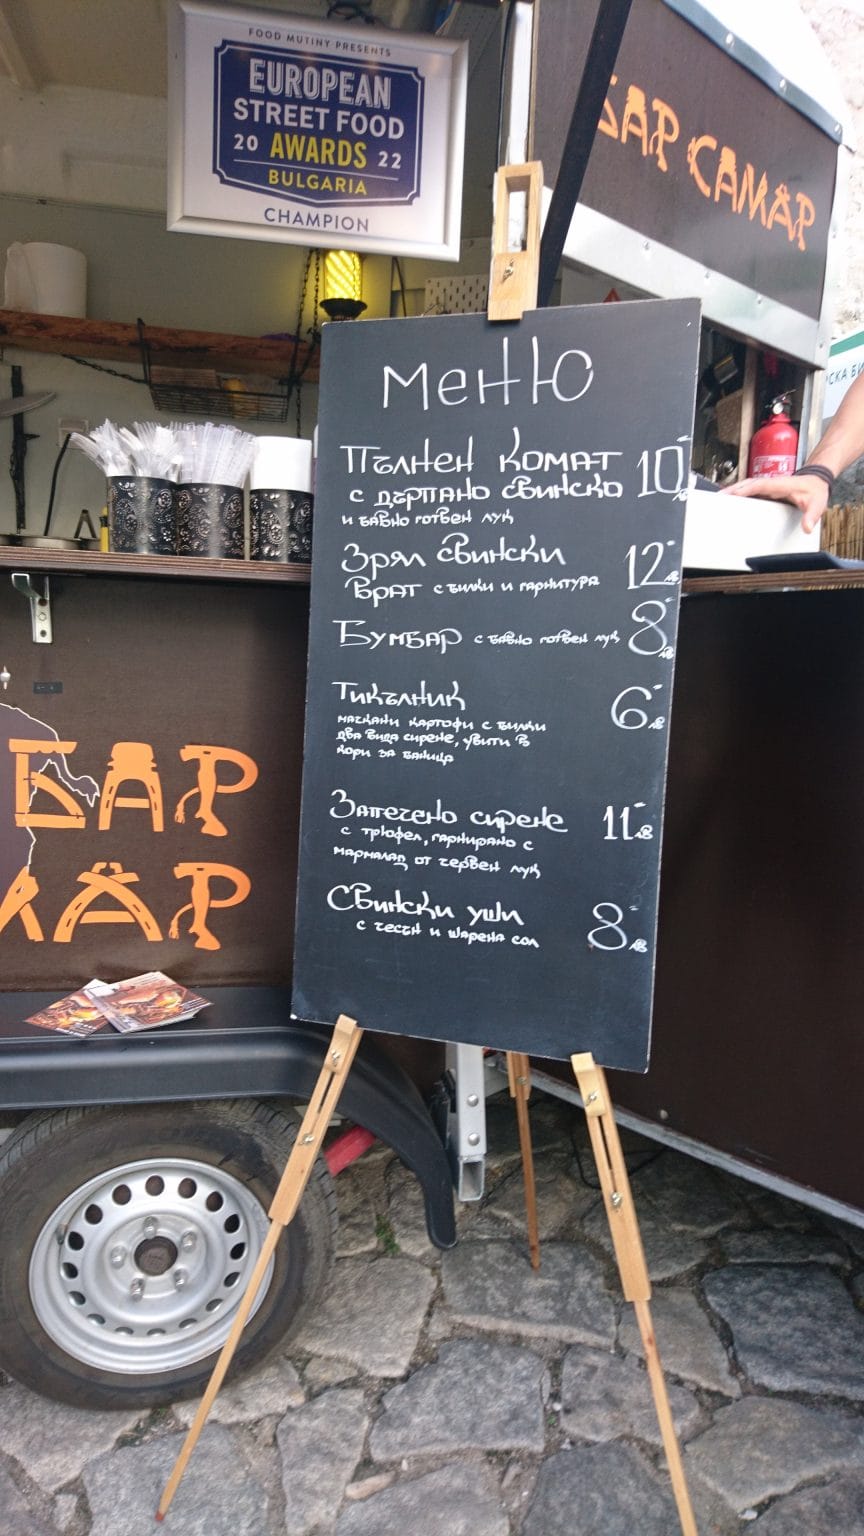 FOOD MUTINY PRESENTS
EUROPEAN
STREET FOOD
20 AWARDS 22
BULGARIA
CHAMPION
БАР САМАР
Меню
Пълнен комат 10-
с дърпано свинско лв
и бавно готвен лук
Зрял свински 12-
врат с билки и гарнитура лв
Бумбар с бавно готвен лук 8- лв
Тикълник 6- лв
мачкани картофи с билки
два вида сирене, увити в
кори за баница
Запечено сирене 11- лв
с трюфел, гарнирано с
мармалад от червен лук
Свински уши 8- лв
с чесън и шарена сол
БАР
МАР